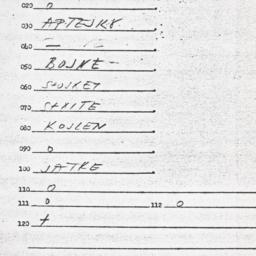 020 0
030 APTEJKY
040
050 BOJNE -
060
070
080 KOJLEN
090 0
100 JATKE
110 0
111 0 112 0
120 +